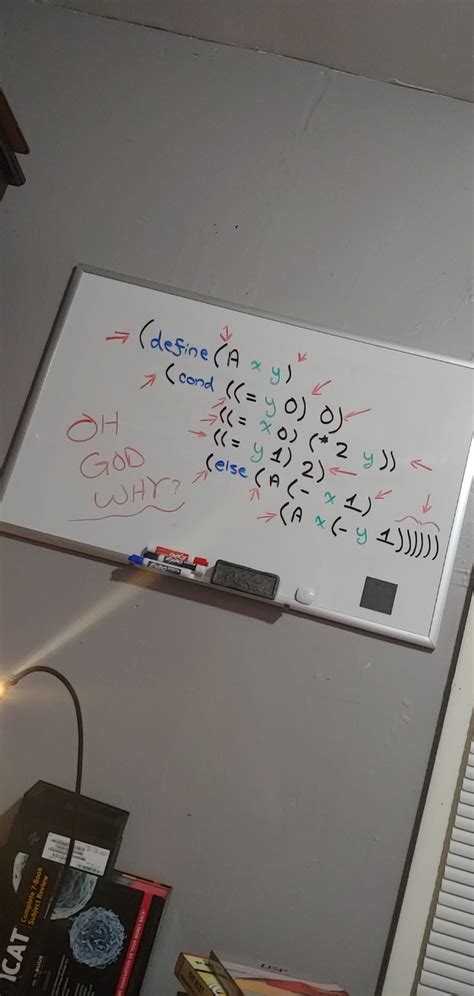 (define (A x y)
(cond ((= y 0) 0)
((= x 0) (* 2 y))
((= y 1) 2)
(else (A (- x 1)
(A x (- y 1))))))
OH
GOD
WHY?
EXPO
CAT
Complete 7-Book
Subject Review